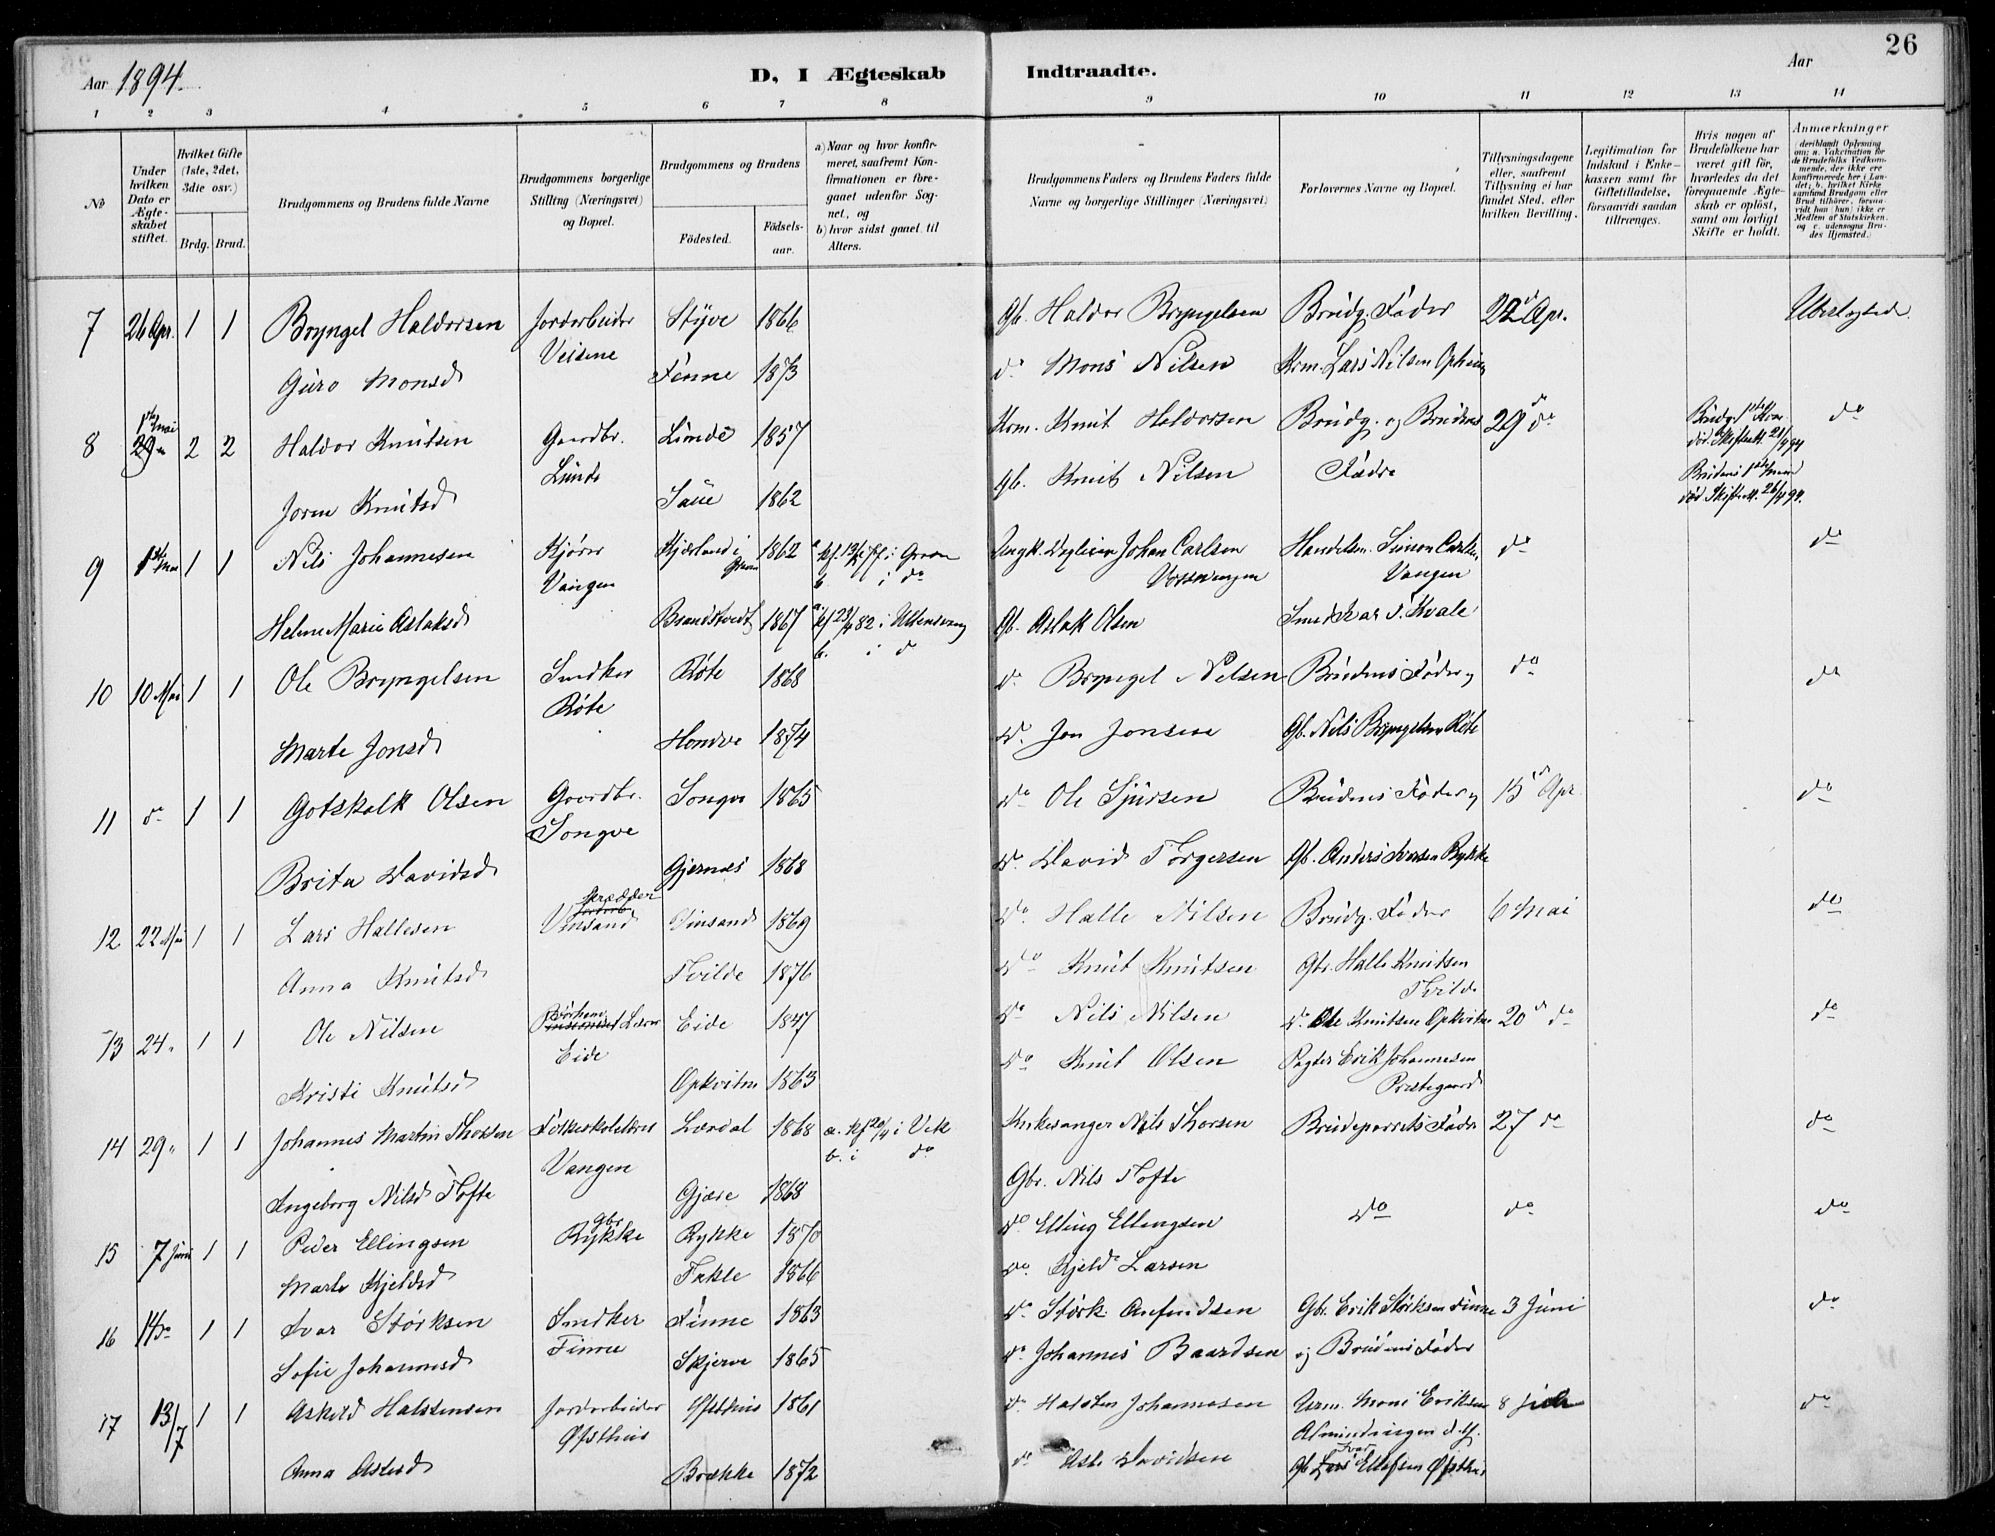 26
Aar 1894.
D, I Ægteskab Indtraadte.
Aar
1 2 3 4 5 6 7 8 9 10 11 12 13 14
No
Under hvilken Dato er Ægteskabet stiftet.
Hvilket Gifte (1ste, 2det, 3die osv.)
Brdg. Brud.
Brudgommens og Brudens fulde Navne
Brudgommens borgerlige Stilling (Næringsvei) og Bopæl.
Brudgommens og Brudens
Födested. Födselsaar.
a) Naar og hvor konfirmeret, saafremt Konfirmationen er foregaaet udenfor Sognet, og
b) hvor sidst gaaet til Alters.
Brudgommens Faders og Brudens Faders fulde Navne og borgerlige Stillinger (Næringsvei)
Forlovernes Navne og Bopæl.
Tillysningsdagene eller, saafremt Tillysning ei har fundet Sted, efter hvilken Bevilling.
Legitimation for Indskud i Enkekassen samt for Giftetilladelse, forsaavidt saadan tiltrænges.
Hvis nogen af Brudefolkene har været gift för, hvorledes da det foregaaende Ægteskab er oplöst, samt om lovligt Skifte er holdt.
Anmærkninger (deriblandt Oplysning om: a. Vakcination for de Brudefolks Vedkommende, der ikke ere konfirmerede her i Landet; b. hvilket Kirkesamfund Brudgom eller Brud tilhörer, forsaavidt han (hun) ikke er Medlem af Statskirken, og c. udensogns Brudes Hjemsted.)
7 26 Apr. 1 1 Bryngel Haldorsen Jordarbeider Styve 1866 Gb. Haldor Bryngelsen Brudg. Fader 22 Apr. Ubeslegted.
Guro Monsd Veisene Finne 1873 do Mons Nilsen Krm. Lars Nilsen Opheim
8 1ste mai 29 2 2 Haldor Knutsen Gaardbr. Lunde 1857 Krm. Knut Haldorsen Brudg. og Brudens 29 do Brudg. 1ste Kone død. Skifteatt. 21/4 94 do
Joren Knutsd Lunde Saue 1862 Gb. Knut Nilsen Fædre Brudens 1ste mand død Skifteatt. 26/4 94.
9 1ste Mai 1 1 Nils Johannesen Kjører Kjærland i Graven 1862 a. kf. 77 i Graven Johan Carlsen Handelsm. Simon Carlsen do do
Vangen b. i do Vossevangen Vangen
Helene Marie Aslaksd Brandstvedt 1867 a. kf 23/4 82 i Ullensvang Gb. Aslak Olsen Smed Ivar S. Kvale
b. i do
10 10 Mai 1 1 Ole Bryngelsen Snedker Røte 1868 do Bryngel Nilsen Brudens Fader og do do
Marte Jonsd Røte Hondve 1874 do Jon Jonsen Gb. Nils Bryngelsen Røte
11 do 1 1 Gotskalk Olsen Gaardbr. Songve 1865 do Ole Sjursen Brudens Fader og 15 Apr. do
Brita Davidsd Songve Gjernes 1868 do David Torgersen Gb. Anders Ivarsen Rykke
12 22 Mai 1 1 Lars Hallesen Skrædder Vinsand Vinsand 1869 do Halle Nilsen Brudg. Fader 6 Mai do
Anna Knutsd Tvilde 1876 do Knut Knutsen Gbr. Halle Knutsen Tvilde
13 24 1 1 Ole Nilsen Eide Eide 1847 do Nils Nilsen do Ole Knutsen Opkvitne 20 do do
Kristi Knutsd Opkvitne 1863 do Knut Olsen Pagter Erik Johannesen Prestegaard
14 29 1 1 Johannes Martin Thorsen Folkeskolelærer Lærdal 1868 a. kf 20/4 i Vik Kirkesanger Nils Thorsen Brudeparrets Fædre 27 do do
Vangen b. i do
Ingeborg Nilsd Tofte Gjære 1868 Gbr. Nils Tofte
15 7 Juni 1 1 Peder Ellingsen Gbr. Rykke Rykke 1870 do Elling Ellingsen do do do
Marte Kjeldsd Takle 1866 do Kjeld Larsen
16 14 do 1 1 Ivar Størksen Snedker Finne 1863 do Størk Anfindsen Gbr. Erik Størksen Finne 3 Juni do
Sofie Johannesd Finne Skjerve 1865 do Johannes Baardsen og Brudens Fader
17 13/7 1 1 Askeld Halstensen Jordarbeider Østhus 1861 do Halsten Johannesen Mons Eriksen 8 juli do
Østhus Almindingen
Anna Davidsd Brække 1872 do Davidsen Gb. Ivar Ellefsen Østhus